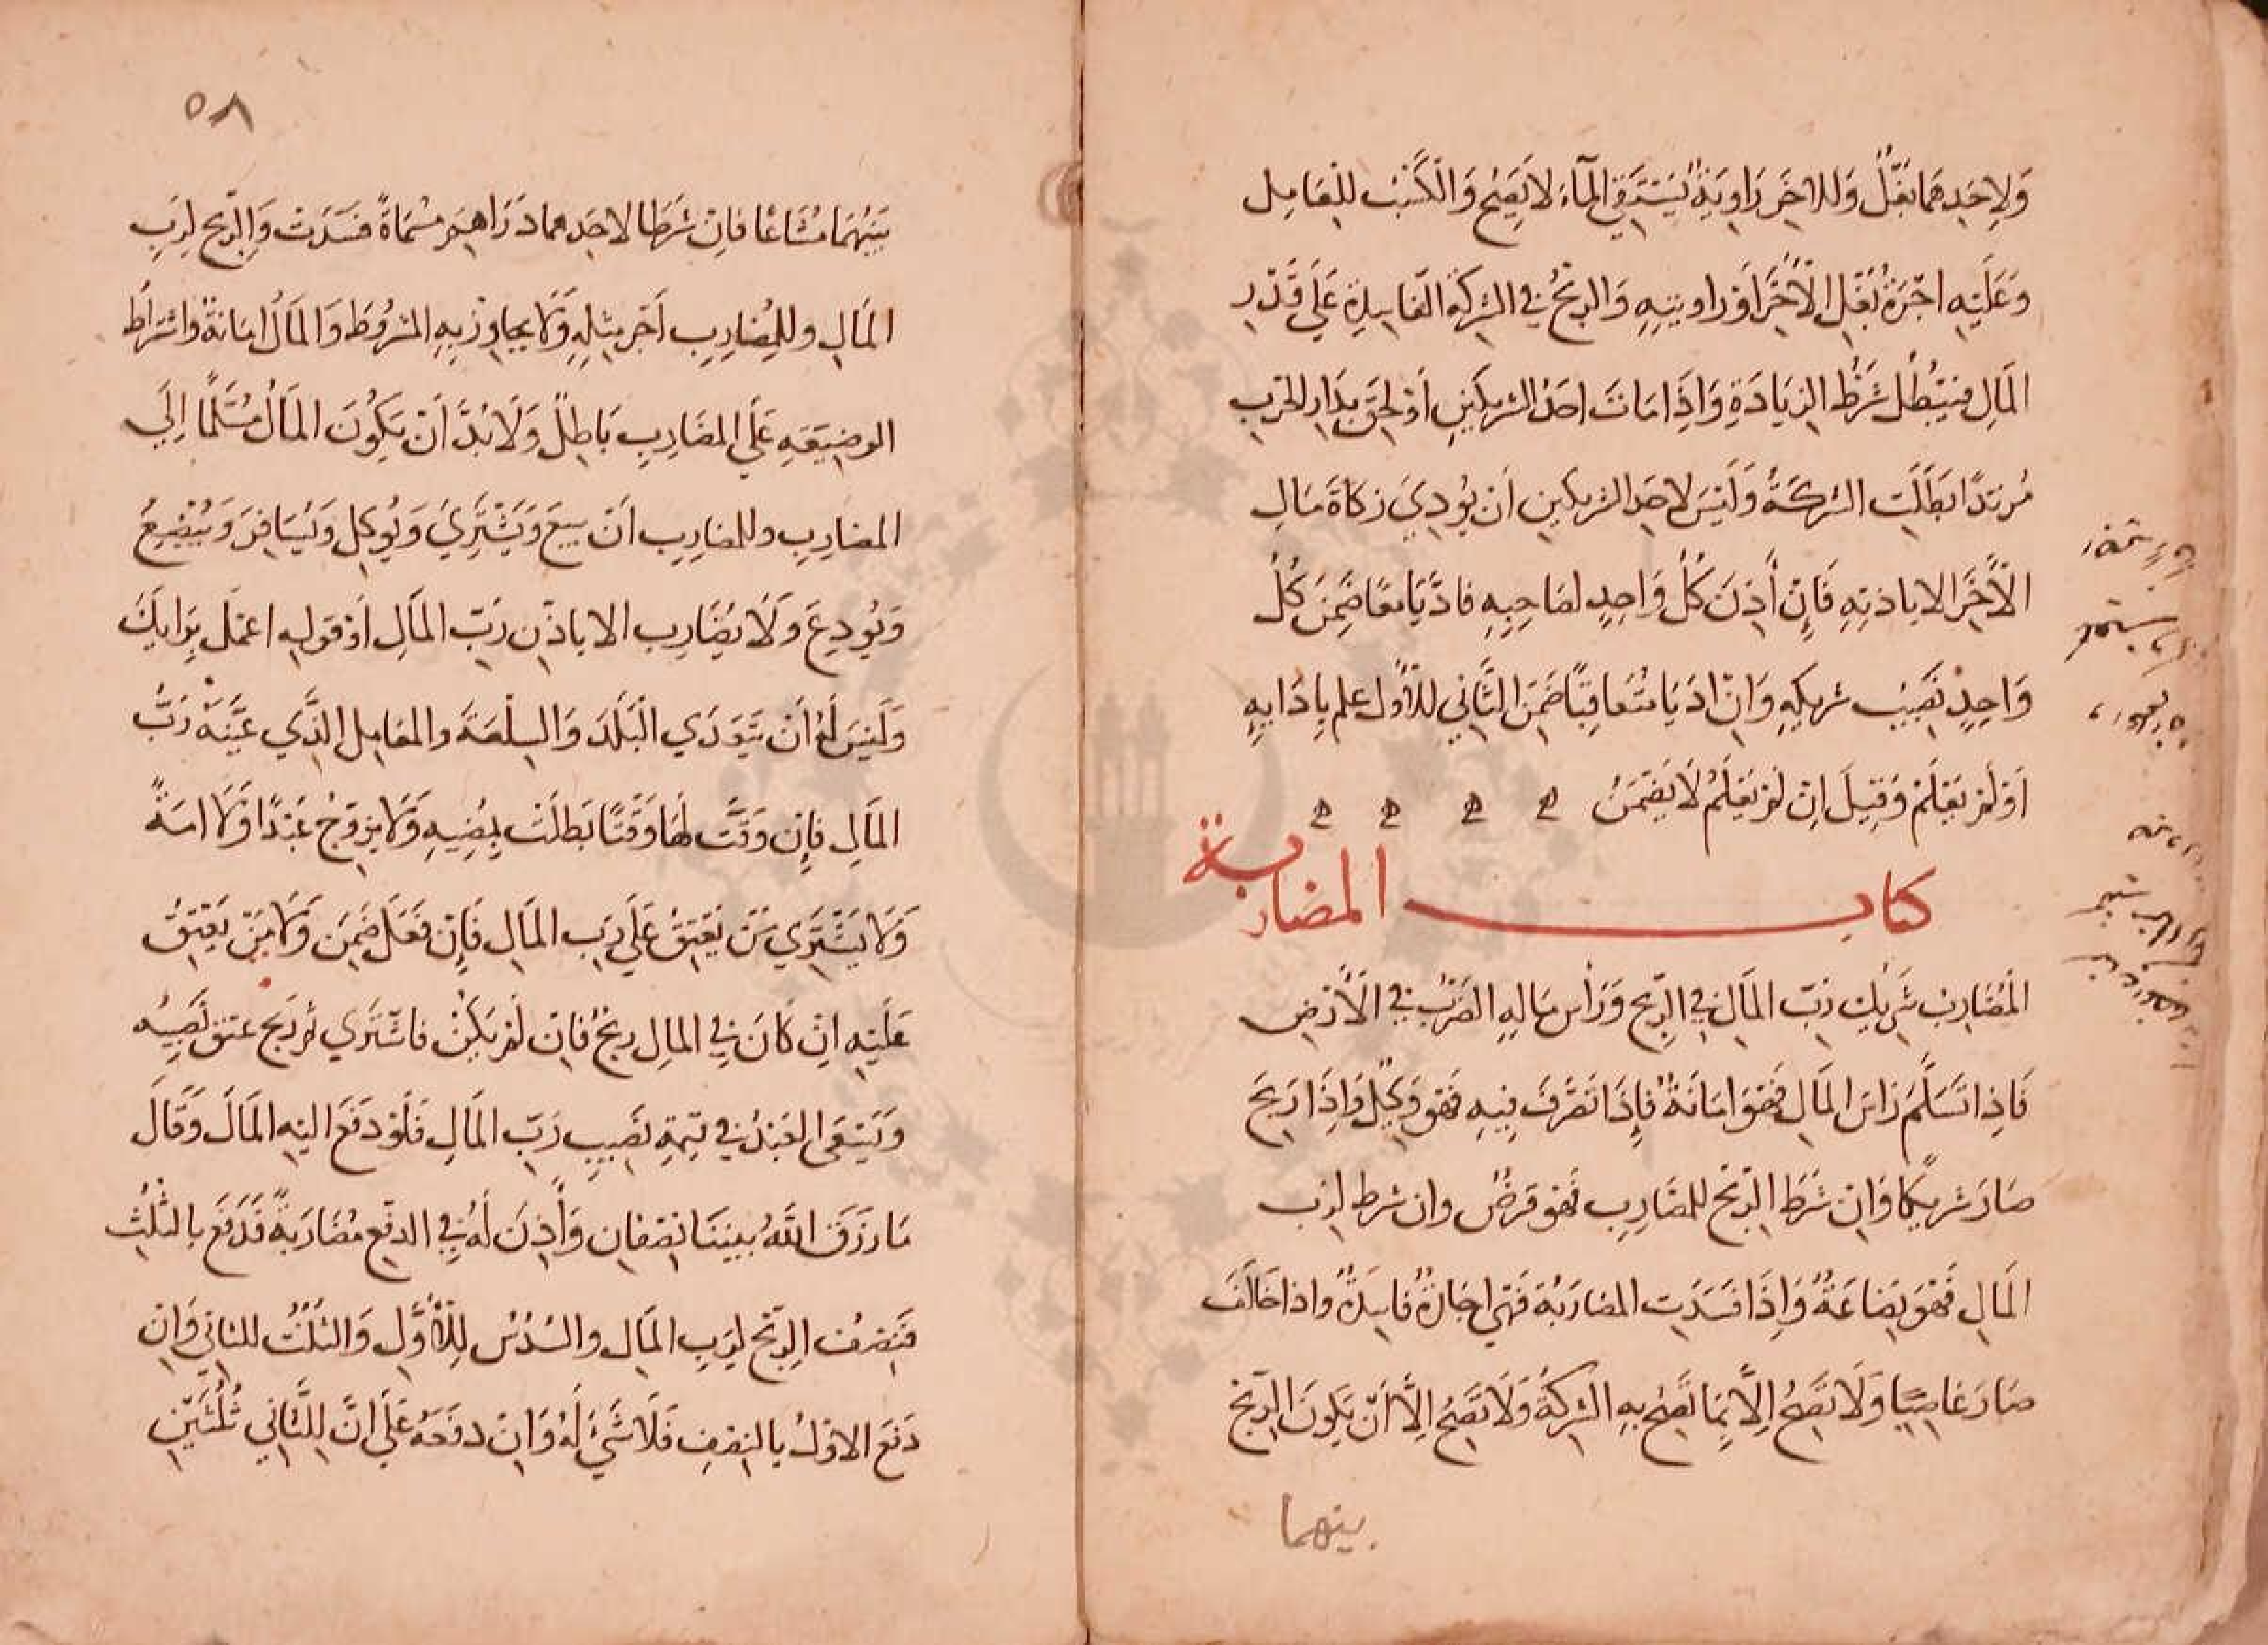 وَلِاَحَدِهِمَا بَغْلٌ وَلِلْاخَرِ رَاوِيَةٌ يَسْتَقِي المَآءَ لَا يَصِحُّ وَالْكَسْبُ لِلْعَامِلِ
وَعَلَيْهِ اجْرَةُ بَغْلِ الْأخَرِ اَوْ رَاوِيَتِهِ وَالرِبْحُ فِي الشِرْكَةِ الفَاسِدَةِ عَلَي قَدْرِ
المَالِ فَيَبْطُلُ شَرْطُ الزِيَادَةِ وَاِذَا مَاتَ احَدُ الشَرِيكَيْنِ اَوْ لَحِقَ بِدَارِ الحَرْبِ
مُرْتَدًا بَطَلَتِ الشِركَةُ وَلَيْسَ لِاحَدِ الشريكينِ اَن يُؤَدِيَ زَكَاةَ مَالِ
الْأخَرِ الا باذنِهِ فَإِنْ أَذِنَ كُلُّ وَاحِدٍ لصَاحِبِهِ فادَّيَا مَعًا ضَمِنَ كُلُ
وَاحِدٍ نَصِيبَ شريكِهِ وَانْ ادَيَا مُتَعاقِبًا ضَمِنَ الثَّانِي لِلْأَوَّل علم بِادَايِهِ
اَوْ لَمْ يَعْلَمْ وَقِيلَ اِنْ لَمْ يَعْلَمْ لَا يَضْمَنُ
كتاب المضاربة
المُضَارِبُ شَرِيكُ رَبِّ المَالِ فِي الرِّبْحِ وَرَأْس مَالِهِ الضَرْبُ فِي الْأَرْضِ
فَاِذَا تَسَلَّمَ رَاسَ المَالِ فَهُوَ امَانَةٌ فَإِذَا تَصَرَّفَ فِيهِ فَهُوَ وَكِيْلٌ وَاِذَا رَبِحَ
صَارَ شَرِيكًا وَانْ شَرَطَ الرِّبْحَ للمضَارِبِ فَهُو قَرضٌ وان شرط لِرَبِّ
المَالِ فَهُوَ بِضَاعَةٌ وَاِذَا فَسَدَتِ المضارَبَةُ فَهِيَ اجَارَةٌ فَاسِدَةٌ واذا خَالَفَ
صَارَ غَاصِبًا وَلَا تَصِحُّ اِلَّا بِمَا تَصِحُّ بِهِ الشِرْكَةُ وَلَا تَصِحُّ اِلَّا أَنْ يَكُونَ الرِّبْحُ
بينهما
٥٨
بَيْنَهُمَا مُشَاعًا فَاِنْ شَرَطَا لاحَدِهِمَا دَرَاهِمَ مُسَمَّاةً فَسَدَتْ وَالرِّبْحُ لِرَبِ
المَالِ وللمُضَارِبِ اَجْرُ مِثْلِهِ وَلَا يجاوزُ بِهِ المشْرُوطَ وَالمَالُ امَانَةٌ واشْتِرَاطُ
الوضِيعَةِ عَلَي المضَارِبِ بَاطِلٌ وَلَا بُدَّ اَنْ يَكُونَ المَالُ مُسَلَّمًا اِلَي
المضارِبِ وللمضارِب اَنْ يبيعَ وَيَشْتَرِيَ وَيُوَكِلَ وَيُسَافِرَ وَيُبْضِعَ
وَيُودِعَ وَلَا يُضَارِب الا باذْنِ رَبِّ المَالِ اَوْ قولِهِ اعْمَل بِرَايِكَ
وَلَيْسَ لَهُ اَنْ يَتَعَدَّي الْبَلَدَ وَالسِلْعَةَ والمعَامِلَ الذَّي عَيَّنَهُ رَبُّ
المَالِ فَإِنْ وَقَّتَ لَهَا وَقْتًا بَطَلَتْ بِمُضِيِهِ وَلَا يُزوِّجُ عَبْدًا وَلَا امَةً
وَلَا يَشْتَرِي مَنْ يَعْتِقُ عَلَي رَبِ المَالِ فَإِنْ فَعَلَ ضَمِنَ وَلَا مَنْ يَعْتِقُ
عَلَيْهِ اِنْ كَانَ فِي المَالِ رِبْحٌ فَاِنْ لَمْ يَكُنْ فاشْتَرَي ثم رَبحَ عتق نَصِيبُه
وَيَسْعَى العَبْدُ فِي قِيمَةِ نَصِيبِ رَبِّ المَالِ فَلَوْ دَفَعَ اليْهِ المَالَ وَقَالَ
مَا رَزَقَ اللَّهُ بَيْنَنَا نِصْفَانِ وَأَذِنَ لَهُ فِي الدَفْعِ مُضَارَبَةً فَدَفَعَ بالثُلُثِ
فَنِصْفُ الرِّبْحِ لِرَبِ المَالِ والسُدُسُ لِلْأَوَّلِ وَالثلُثُ للثاني وَانْ
دَفَعَ الاوَّلُ بالنِصْفِ فَلَا شَيْءَ لَهُ وَانْ دفَعَهُ عَلَي انَّ لِلثَّانِي ثُلُثَيْنِ